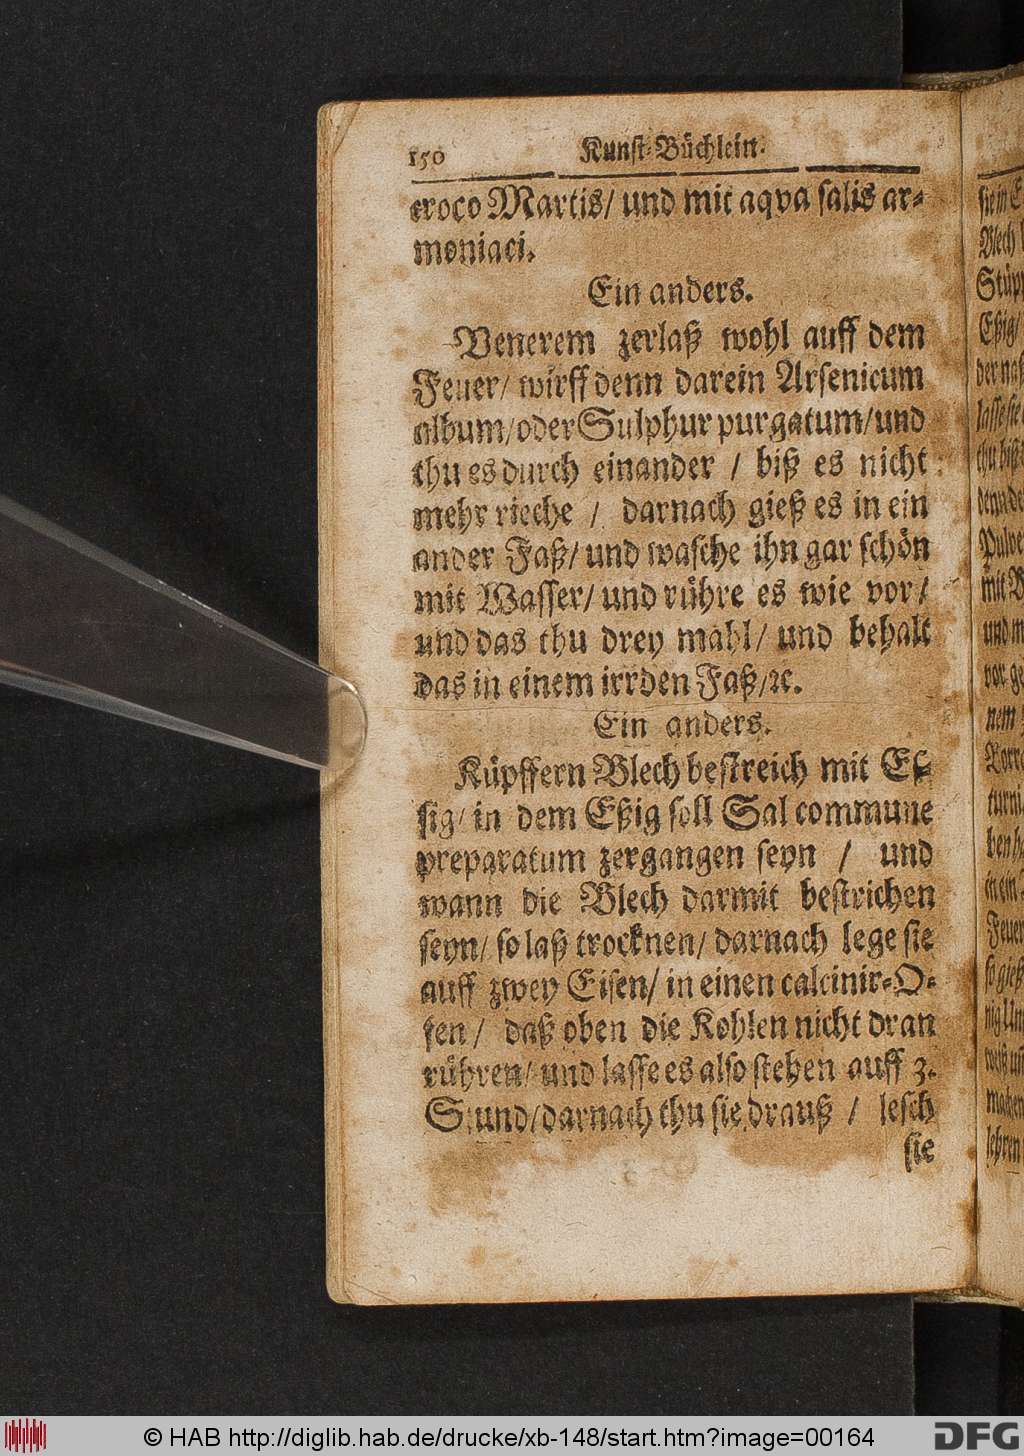 150 Kunst-Büchlein.
croco Martis/ und mit aqva salis ar-
moniaci.
Ein anders.
Venerem zerlaß wohl auff dem
Feuer/ wirff denn darein Arsenicum
album/ oder Sulphur purgatum/ und
thu es durch einander / biß es nicht
mehr rieche / darnach gieß es in ein
ander Faß/ und wasche ihn gar schön
mit Wasser/ und rühre es wie vor/
und das thu drey mahl/ und behalt
das in einem irrden Faß/ ꝛc.
Ein anders.
Küpffern Blech bestreich mit Es-
sig/ in dem Eßig soll Sal commune
preparatum zergangen seyn / und
wann die Blech darmit bestrichen
seyn/ so laß trocknen/ darnach lege sie
auff zwey Eisen/ in einen calcinir-O-
fen / daß oben die Kohlen nicht dran
rühren/ und lasse es also stehen auff 3.
Stund/ darnach thu sie drauß / lesch
sie
sie in
Blech
Stüp
Eßig/
der naß
lasse sie
thu biß
Pulve
mit W
und m
vor ge
nem
turni
ben h
in ein
Feuer
so gieß
lehren
© HAB http://diglib.hab.de/drucke/xb-148/start.htm?image=00164
DFG